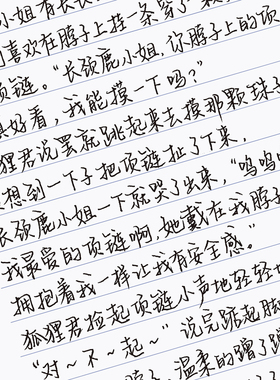 小姐有长长
们喜欢在脖子上挂一条穿了
项链。“长颈鹿小姐,你脖子上的项
真好看,我能摸一下吗?”
狐狸君说罢就跳起来去摸那颗珠子
想到一下子把项链扯了下来,
长颈鹿小姐一下就哭了出来,“呜呜呜
我最爱的项链啊,她戴在我脖子
拥抱着我一样让我有安全感。”
狐狸君捡起项链小声地轻轻地
“对~不~起~”说完踮起脚
脖子,温柔的蹭了蹭